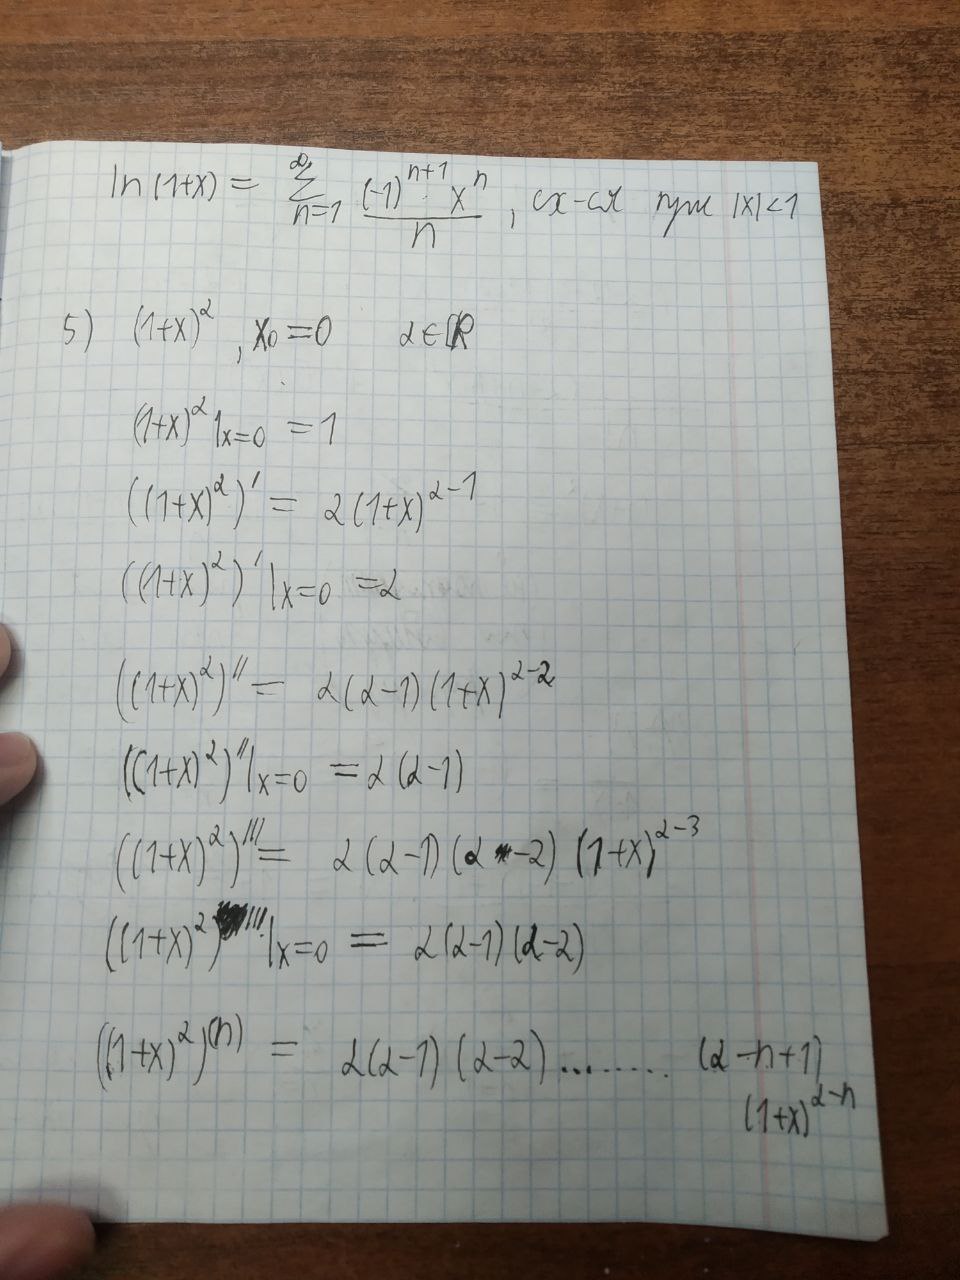 ln(1+x) = ∑_{n=1}^{∞} \frac{(-1)^{n+1} · x^n}{n}, сх-ся при |x|<1
5) (1+x)^α, x₀=0 α∈ℝ
(1+x)^α|_{x=0} = 1
((1+x)^α)' = α(1+x)^{α-1}
((1+x)^α)'|_{x=0} = α
((1+x)^α)'' = α(α-1)(1+x)^{α-2}
((1+x)^α)''|_{x=0} = α(α-1)
((1+x)^α)''' = α(α-1)(α-2)(1+x)^{α-3}
((1+x)^α)'''|_{x=0} = α(α-1)(α-2)
((1+x)^α)^{(n)} = α(α-1)(α-2)......... (α-n+1)
(1+x)^{α-n}